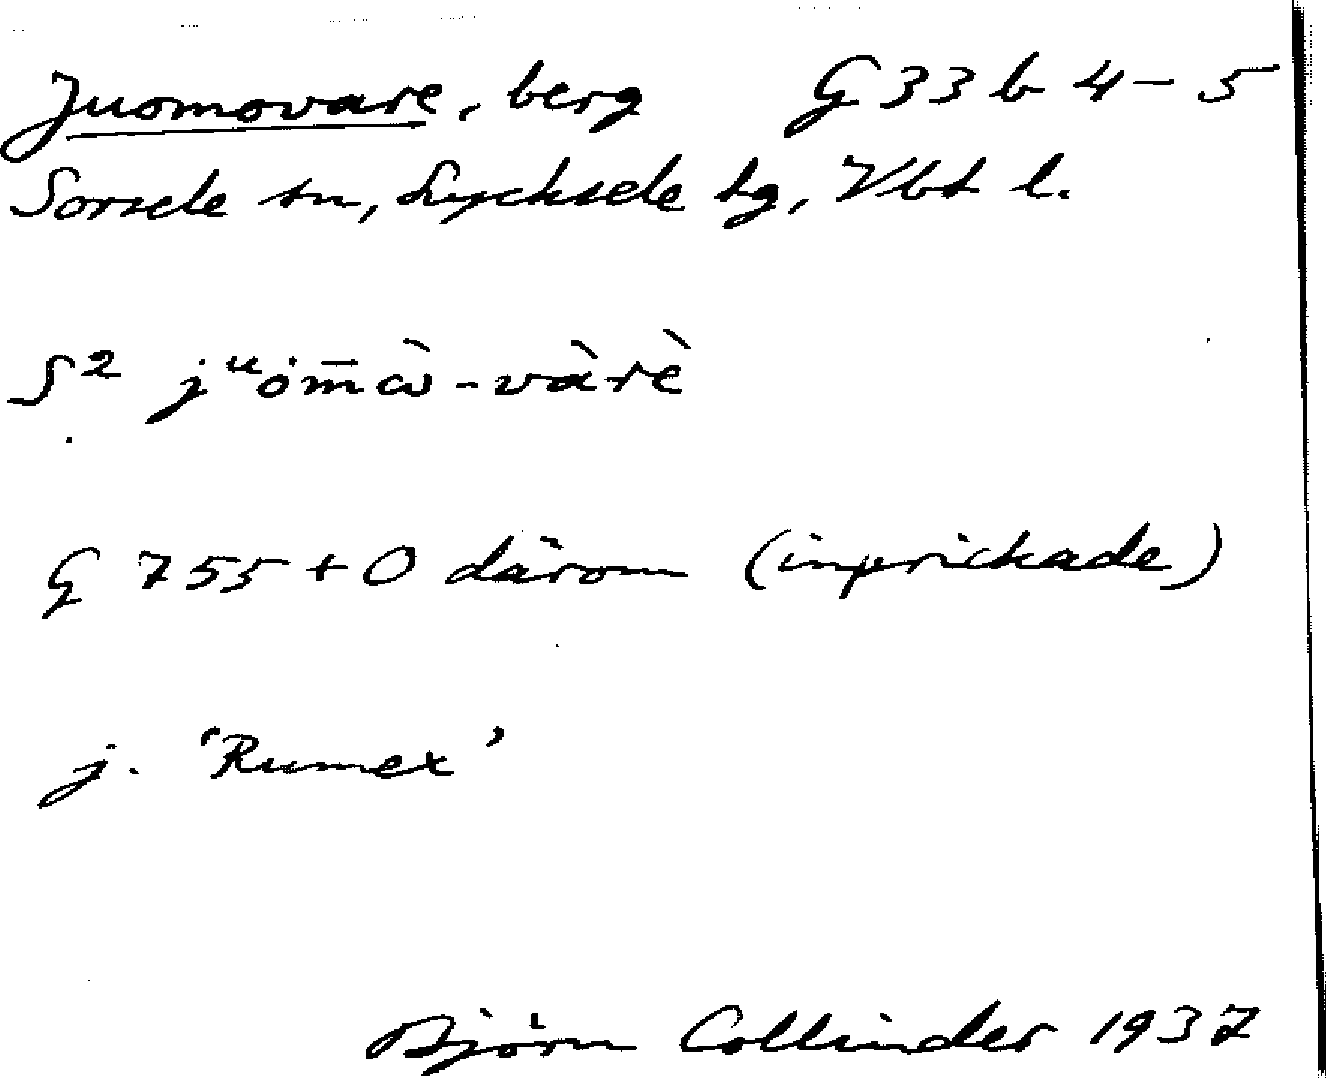 Juomovare, berg G 33 b 4-5
Sorsele sn, Lycksele tg, Vbt l.
S² jᵘȯm̄ὼ-vàrè
G 755 + O därom (inprickade)
j. 'Rumex'
Björn Collinder 1937